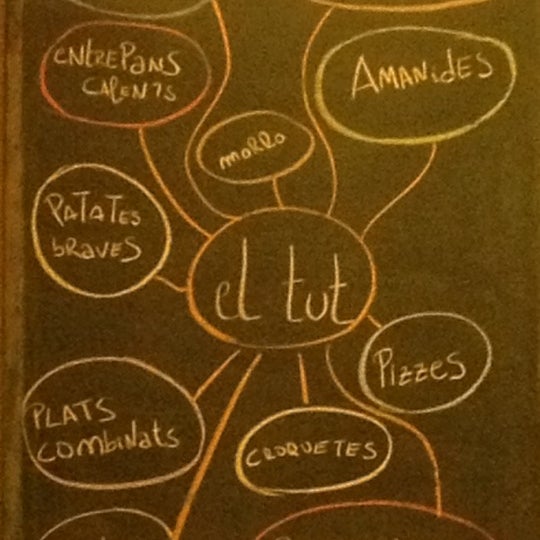 ENTREPANS
CALENTS
AMANIDES
MORRO
PATATES
BRAVES
el tut
PIZZES
PLATS
COMBINATS
CROQUETES